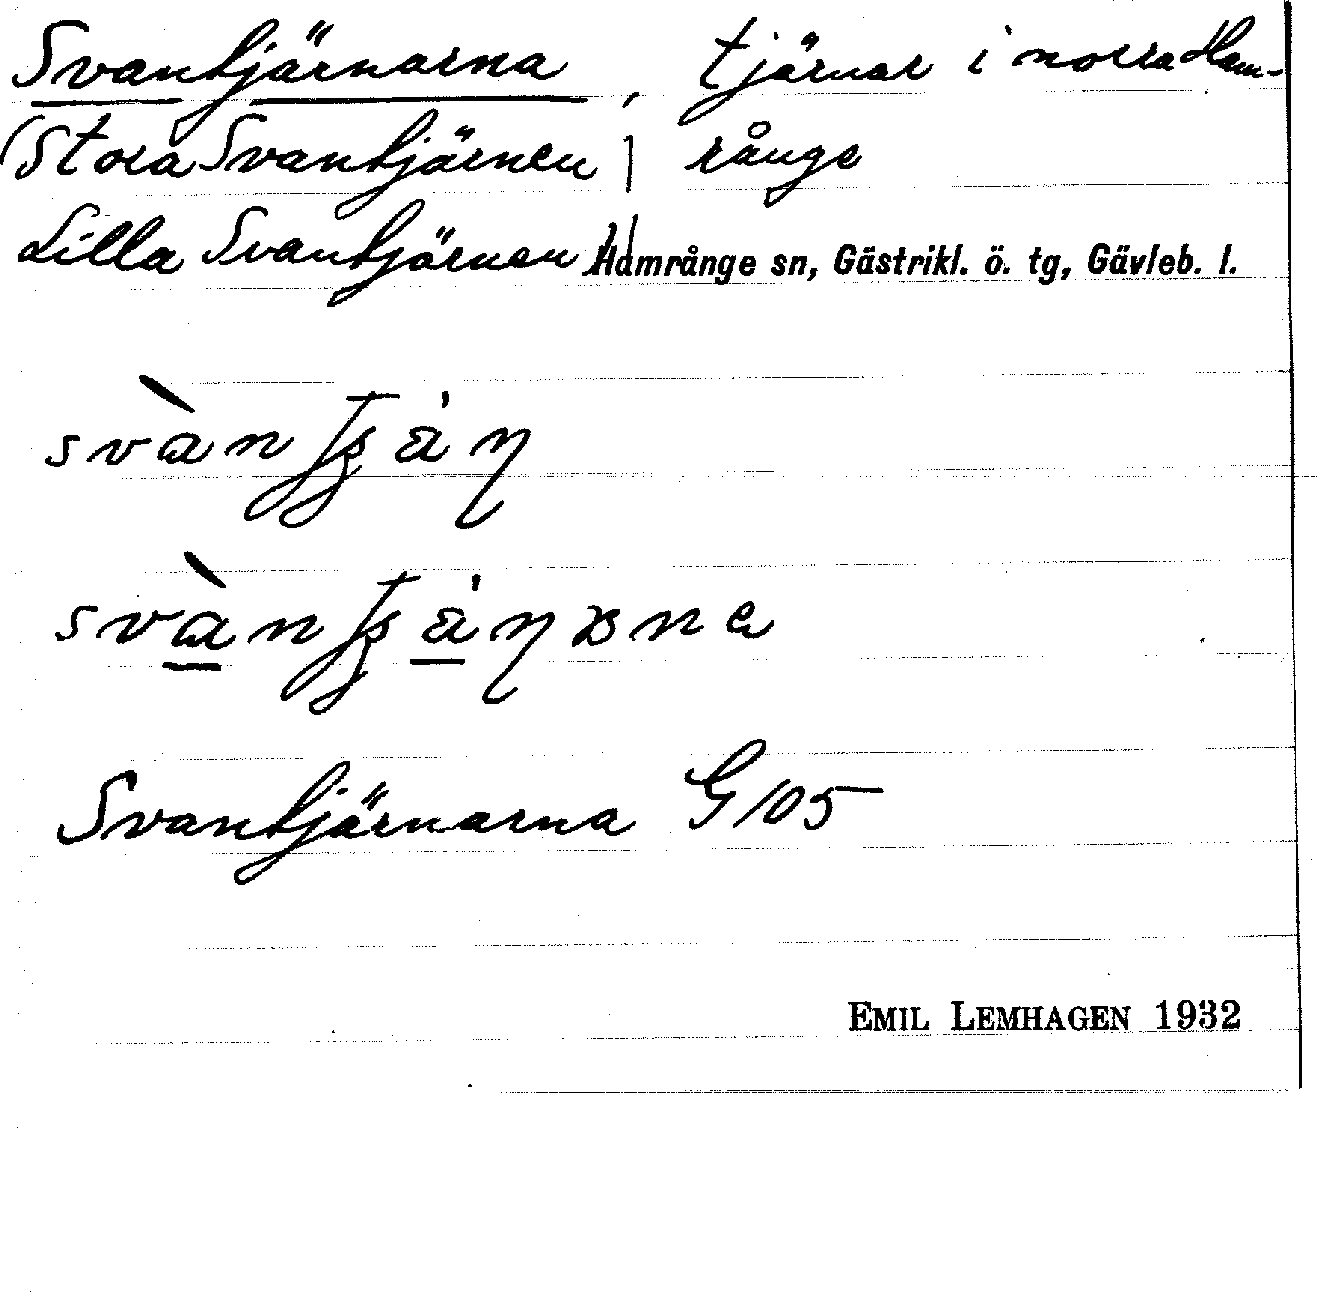 Svantjärnarna, tjärnar i norra Ham-
(Stora Svantjärnen) rånge
Lilla Svantjärnen) Hamrånge sn, Gästrikl. ö. tg, Gävleb. l.
Svantjärnarna G 105
EMIL LEMHAGEN 1932